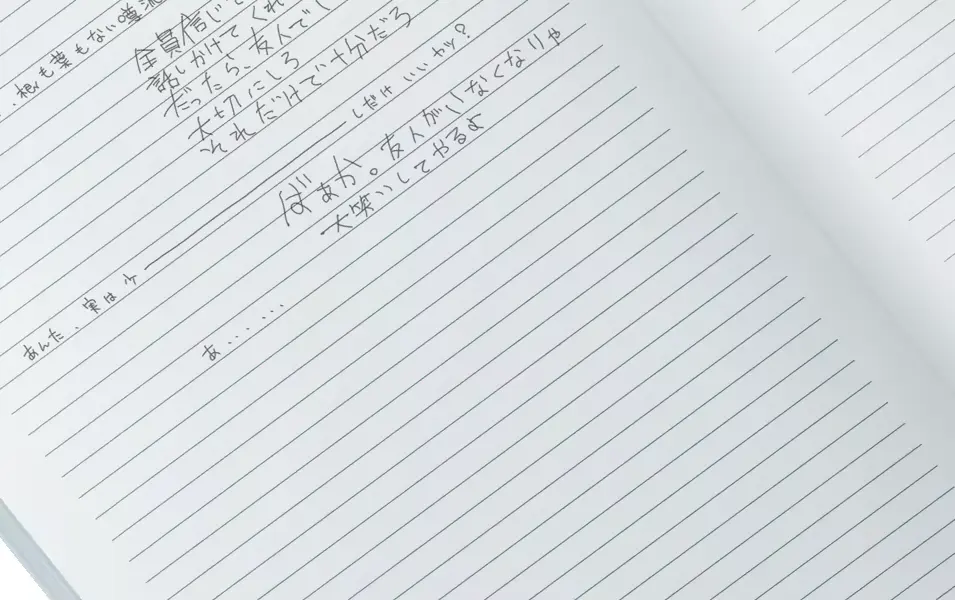 根も葉もない噂
全員信じて
話しかけてくれ
だったら、友人でし
大切にしろ
それだけで十分だろ
あんた、実は少――――しだけいいヤツ?
ばぁか。友人がいなくなりゃ
大笑いしてやるよ
あ……